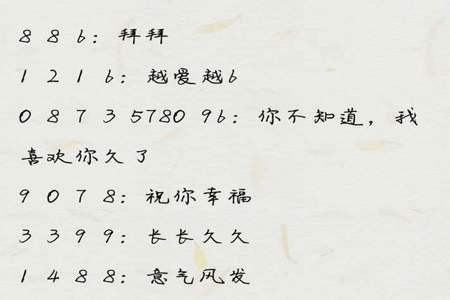 8 8 6：拜拜
1 2 1 6：越爱越6
0 8 7 3 5780 96：你不知道，我
喜欢你久了
9 0 7 8：祝你幸福
3 3 9 9：长长久久
1 4 8 8：意气风发